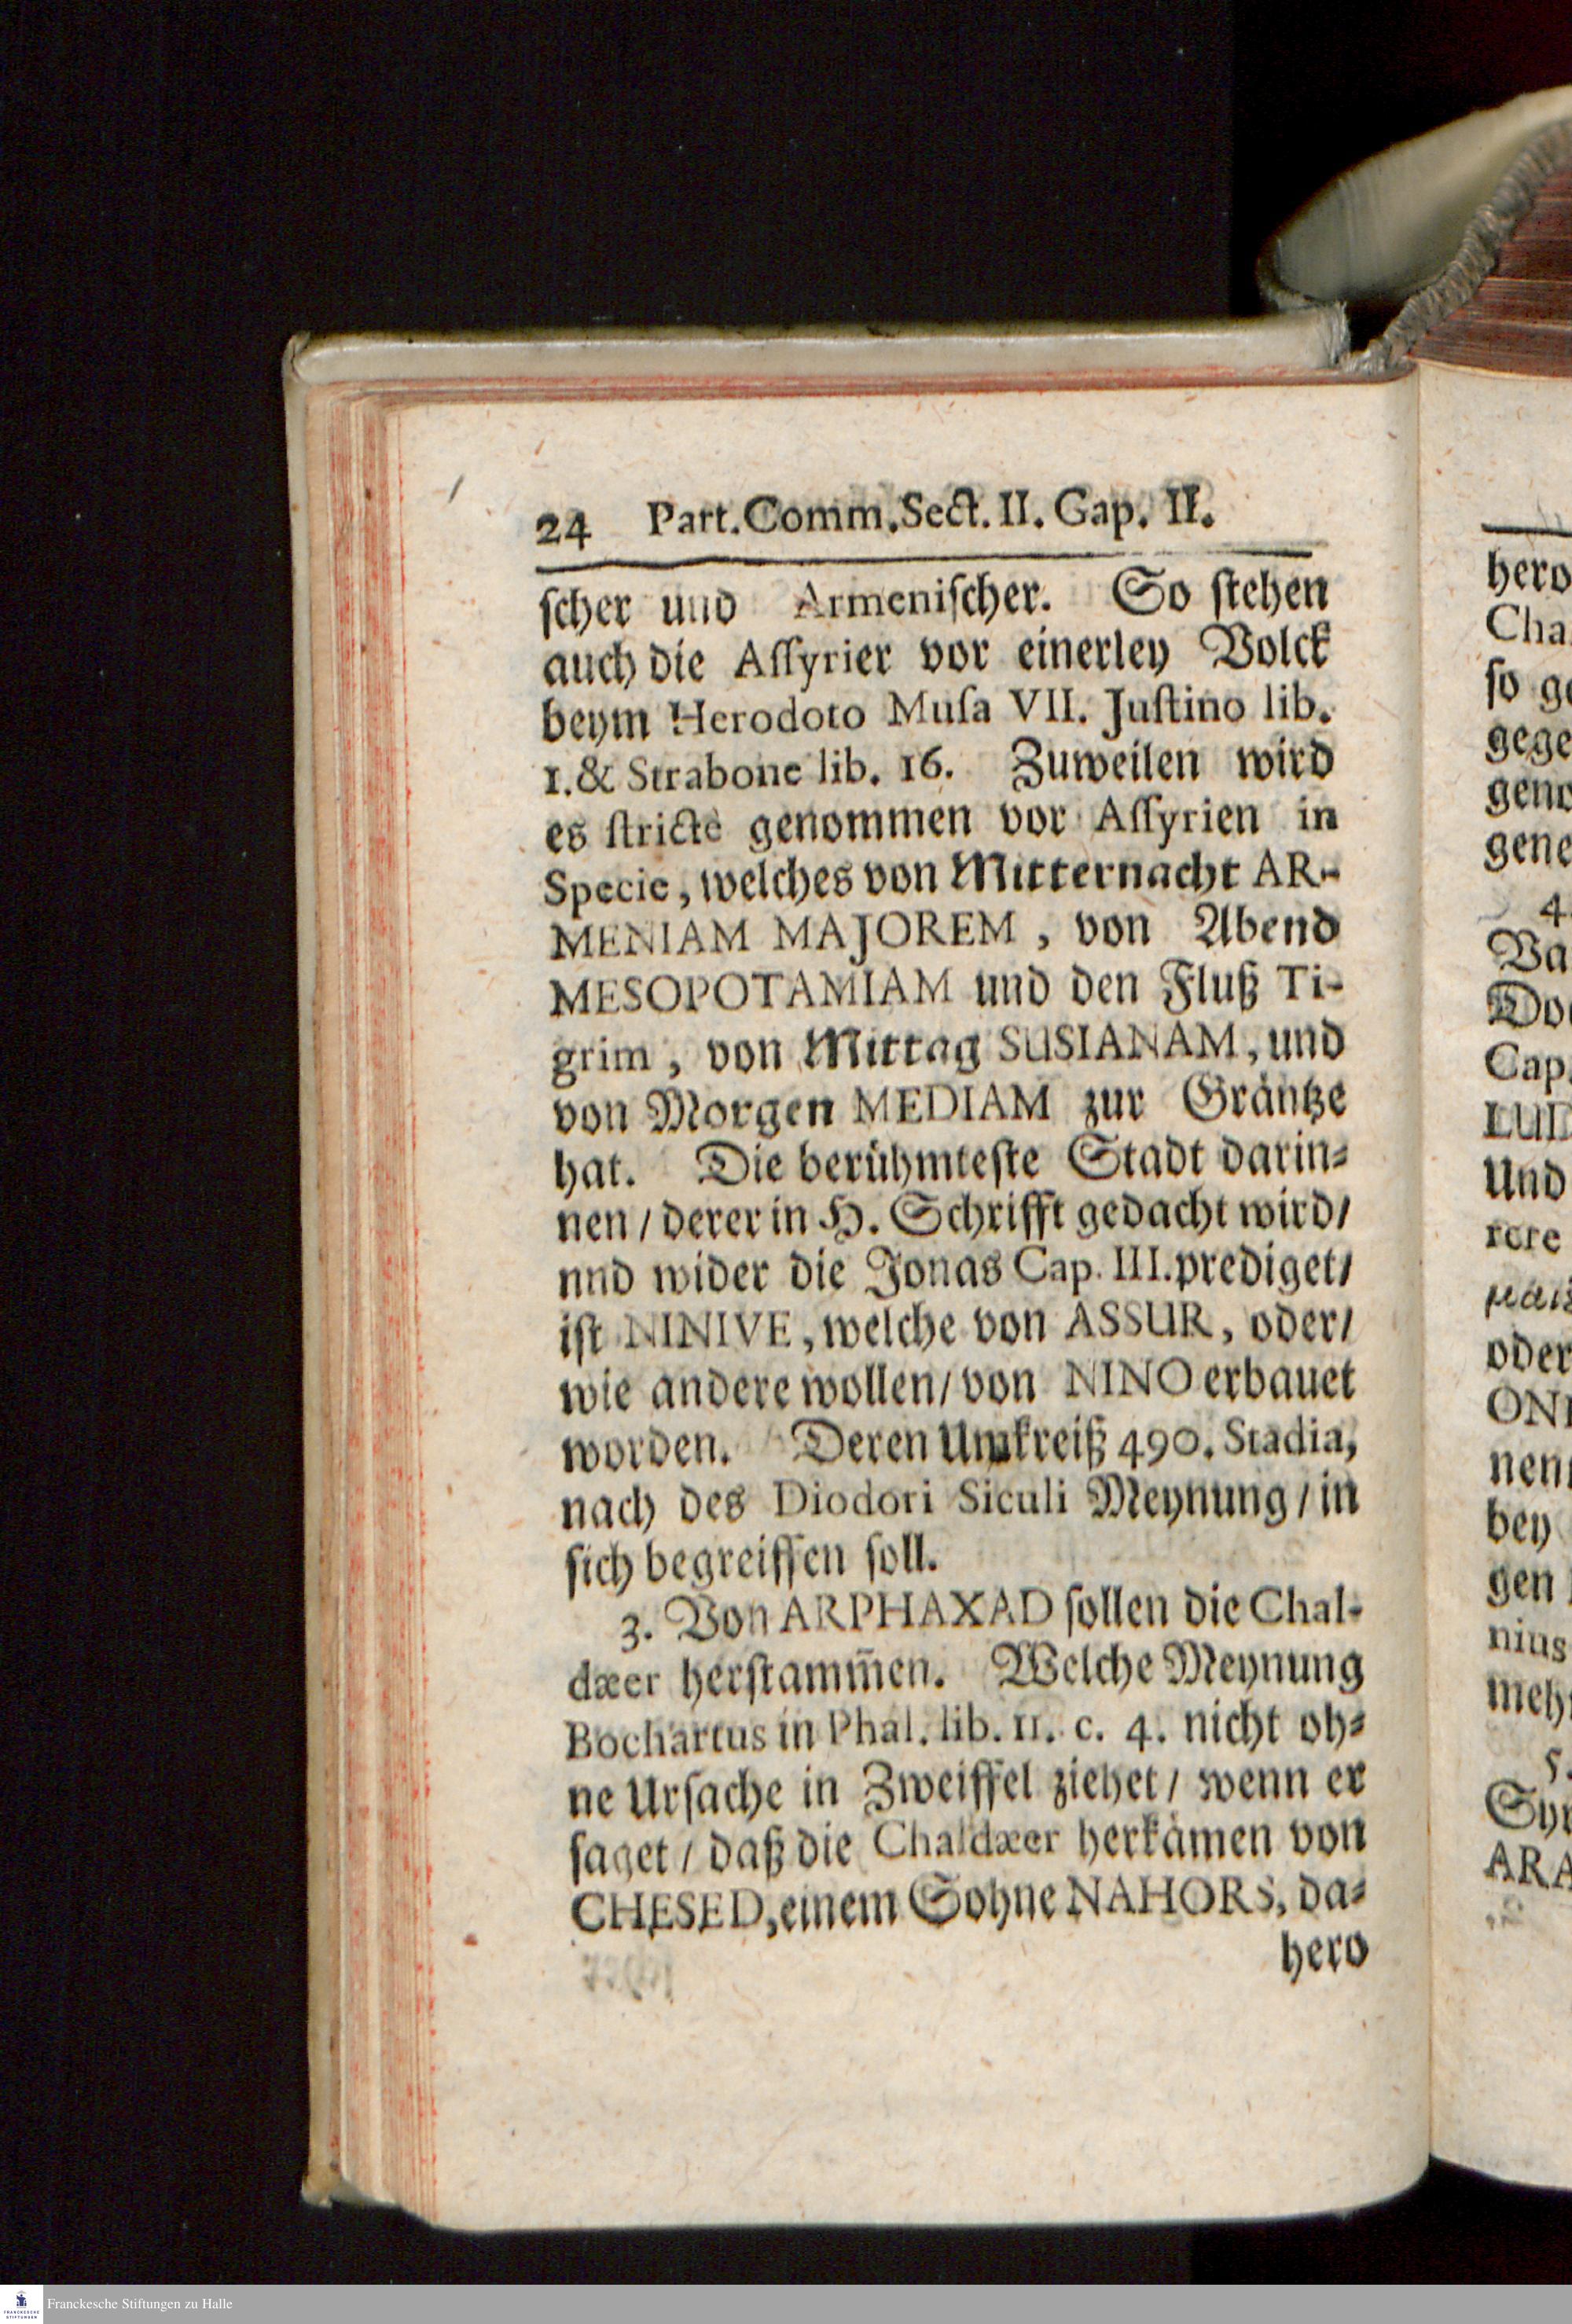 24 Part. Comm. Sect. II. Gap. II.
ſcher und Armeniſcher. So ſtehen
auch die Aſſyrier vor einerley Volck
beym Herodoto Muſa VII. Juſtino lib.
1. & Strabone lib. 16. Zuweilen wird
es ſtricte genommen vor Aſſyrien in
Specie, welches von Mitternacht AR-
MENIAM MAJOREM, von Abend
MESOPOTAMIAM und den Fluß Ti-
grim, von Mittag SUSIANAM, und
von Morgen MEDIAM zur Gräntze
hat. Die berühmteſte Stadt darin-
nen / derer in H. Schrifft gedacht wird /
nnd wider die Jonas Cap. III. prediget /
iſt NINIVE, welche von ASSUR, oder /
wie andere wollen / von NINO erbauet
worden. Deren Umkreiß 490. Stadia,
nach des Diodori Siculi Meynung / in
ſich begreiffen ſoll.
3. Von ARPHAXAD ſollen die Chal-
dæer herſtam̃en. Welche Meynung
Bochartus in Phal. lib. 11. c. 4. nicht oh-
ne Urſache in Zweiffel ziehet / wenn er
ſaget / daß die Chaldæer herkämen von
CHESED, einem Sohne NAHORS, da-
hero
hero
Cha
ſo ge
gege
geno
gene
4.
Va
Do
Cap.
LUD
Und
rere
oder
ON
nen
bey
gen
nius
meh
5.
Sy
ARA
Franckesche Stiftungen zu Halle
FRANCKESCHE
STIFTUNGEN